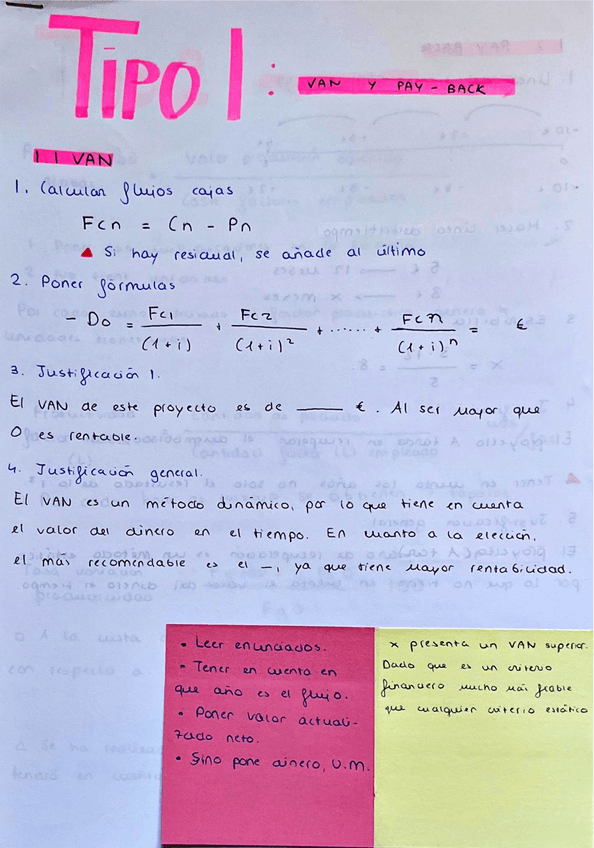 TIPO 1 :
VAN Y PAY - BACK
1.1 VAN
1. Calcular flujos cajas
Fcn = Cn - Pn
▲ Si hay residual, se añade al último
2. Poner fórmulas
- Do = Fc1/(1+i) + Fc2/(1+i)² + ...... + Fcn/(1+i)ⁿ = €
3. Justificación 1.
El VAN de este proyecto es de ____ €. Al ser mayor que
0 es rentable.
4. Justificación general.
El VAN es un método dinámico, por lo que tiene en cuenta
el valor del dinero en el tiempo. En cuanto a la elección,
el más recomendable es el —, ya que tiene mayor rentabilidad.
• Leer enunciados.
• Tener en cuenta en
que año es el flujo.
• Poner valor actuali-
zado neto.
• Sino pone dinero, U.M.
x presenta un VAN superior.
Dado que es un criterio
financiero mucho más fiable
que cualquier criterio estático